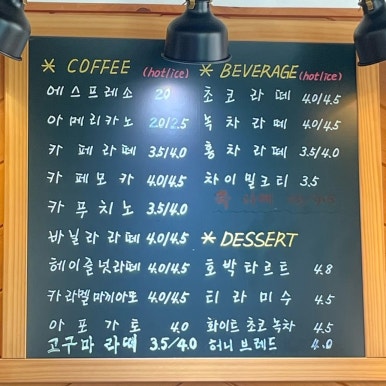 * COFFEE (hot/ice)
에스프레소 2.0
아메리카노 2.0/2.5
카페라떼 3.5/4.0
카페모카 4.0/4.5
카푸치노 3.5/4.0
바닐라라떼 4.0/4.5
헤이즐넛라떼 4.0/4.5
카라멜마끼아또 4.0/4.5
아포가토 4.0
고구마라떼 3.5/4.0
* BEVERAGE (hot/ice)
초코라떼 4.0/4.5
녹차라떼 4.0/4.5
홍차라떼 3.5/4.0
차이밀크티 3.5
* DESSERT
호박타르트 4.8
티라미수 4.5
화이트초코녹차 4.5
허니브레드 4.0